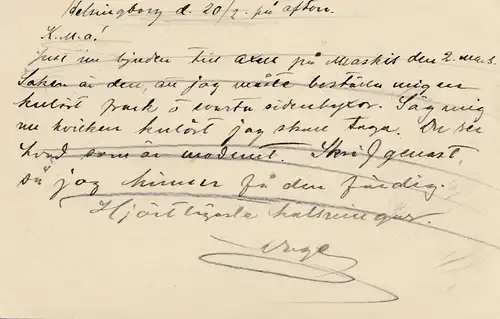 Helsingborg d. 20/2. på afton.
K. M. a!
Just nu bjuden till Axel på Maskis den 2. mars.
Saken är den, att jag måste beställa mig en
kulört frack o svarta sidenbyxor. Säg mig
nu hvilken kulört jag skall taga. Du ser
hvad som är modernt. Skrif genast,
så jag hinner få den färdig.
Hjärtligaste hälsningar.